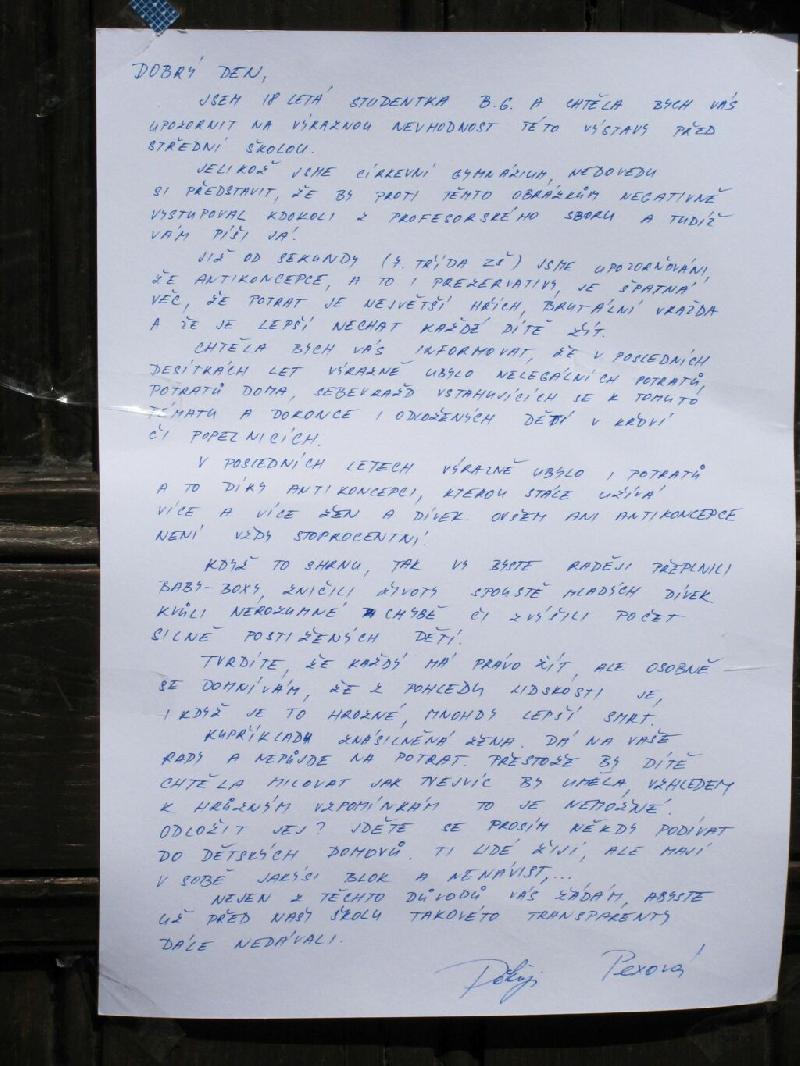 DOBRÝ DEN,
JSEM 18 LETÁ STUDENTKA B.G. A CHTĚLA BYCH VÁS
UPOZORNIT NA VÝRAZNOU NEVHODNOST TÉTO VÝSTAVY PŘED
STŘEDNÍ ŠKOLOU.
JELIKOŽ JSME CÍRKEVNÍ GYMNÁZIUM, NEDOVEDU
SI PŘEDSTAVIT, ŽE BY PROTI TĚMTO OBRÁZKŮM NEGATIVNĚ
VYSTUPOVAL KDOKOLI Z PROFESORSKÉHO SBORU A TUDÍŽ
VÁM PÍŠI JÁ.
JIŽ OD SEKUNDY (7. TŘÍDA ZŠ) JSME UPOZORŇOVÁNI,
ŽE ANTIKONCEPCE, A TO I PREZERVATIVY, JE ŠPATNÁ
VĚC, ŽE POTRAT JE NEJVĚTŠÍ HŘÍCH, BRUTÁLNÍ VRAŽDA
A ŽE JE LEPŠÍ NECHAT KAŽDÉ DÍTĚ ŽÍT.
CHTĚLA BYCH VÁS INFORMOVAT, ŽE V POSLEDNÍCH
DESÍTKÁCH LET VÝRAZNĚ UBYLO NELEGÁLNÍCH POTRATŮ,
POTRATŮ DOMA, SEBEVRAŽD VSTAHUJÍCÍCH SE K TOMUTO
TÉMATU A DOKONCE I ODLOŽENÝCH DĚTÍ V KŘOVÍ
ČI POPELNICÍCH.
V POSLEDNÍCH LETECH VÝRAZNĚ UBYLO I POTRATŮ
A TO DÍKY ANTIKONCEPCI, KTEROU STÁLE UŽÍVÁ
VÍCE A VÍCE ŽEN A DÍVEK. OVŠEM ANI ANTIKONCEPCE
NENÍ VŽDY STOPROCENTNÍ.
KDYŽ TO SHRNU, TAK VY BYSTE RADĚJI PŘEPLNILI
BABY-BOXY, ZNIČILI ŽIVOTY SPOUSTĚ MLADÝCH DÍVEK
KVŮLI NEROZUMNÉ CHYBĚ ČI ZVÝŠILI POČET
SILNĚ POSTIŽENÝCH DĚTÍ.
TVRDÍTE, ŽE KAŽDÝ MÁ PRÁVO ŽÍT, ALE OSOBNĚ
SE DOMNÍVÁM, ŽE Z POHLEDU LIDSKOSTI JE,
I KDYŽ JE TO HROZNÉ, MNOHDY LEPŠÍ SMRT.
KUPŘÍKLADU ZNÁSILNĚNÁ ŽENA. DÁ NA VAŠE
RADY A NEPŮJDE NA POTRAT. PŘESTOŽE BY DÍTĚ
CHTĚLA MILOVAT JAK NEJVÍC BY UMĚLA, VZHLEDEM
K HRŮZNÝM VZPOMÍNKÁM TO JE NEMOŽNÉ.
ODLOŽIT JEJ? JDĚTE SE PROSÍM NĚKDY PODÍVAT
DO DĚTSKÝCH DOMOVŮ. TI LIDÉ ŽIJÍ, ALE MAJÍ
V SOBĚ JAKÝSI BLOK A NENÁVIST,...
NEJEN Z TĚCHTO DŮVODŮ VÁS ŽÁDÁM, ABYSTE
UŽ PŘED NAŠÍ ŠKOLU TAKOVÉTO TRANSPARENTY
DÁLE NEDÁVALI.
Děkuji Pexová